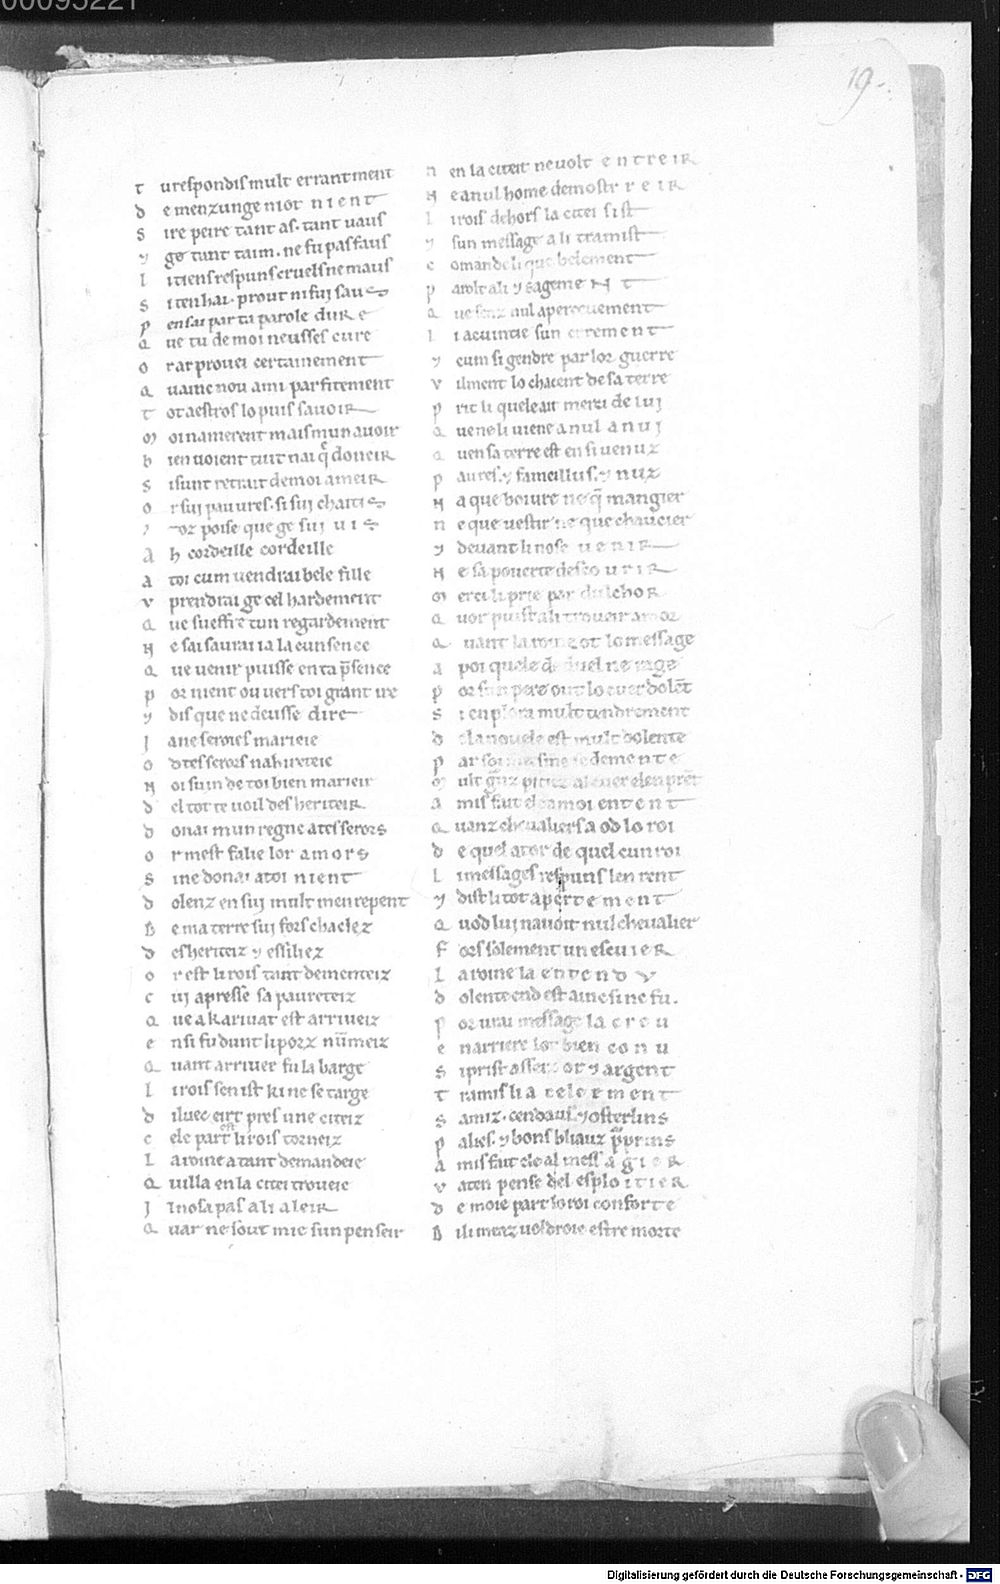 00095221
19.
T u respondis mult errantment
d e menzunge niot nient
S ire peire tant as. tant uaus
⁊ ge tant taim. ne fu pas faus
l i tiens respuns cruels ne maus
S i ten hai. prout ni fui saus
p ensai par ta parole dure
Q ue tu de moi neusses cure
o r ar prouei certainement
Q uaine nou ami parfitement
T ot aestros lo puis sauoir
m oi namerent mais mun auoir
b ien uoient tuit nai q̃ doneir
S i sunt retrait de moi ameir
o r sui pauures. si sui chaitis
⁊ or poise que ge sui uis
A h cordeille cordeille
a toi cum uendrai bele fille
v prendrai ge cel hardement
Q ue sueffre tun regardement
N e sai saurai ia la cunsence
Q ue uenir puisse en ta p̃sence
p or nient ou uers toi grant ire
⁊ dis que ne deusse dire
J a ne seroies marieie
o d tes serors nahireteie
N oi suin de toi bien marieir
d el tot te uoil desheriteir
d onai mun regne a tes serors
o r mest falie lor amors
S i ne donai a toi nient
d olenz en sui mult men repent
B e ma terre sui fors chaciez
d esheriteiz ⁊ essiliez
o r est li rois tant dementeiz
c ui apresse sa paureteiz
Q ue a kariuat est arriueiz
e nsi fu dunt li porz nũmeiz
Q uant arriuer fu la barge
l i rois sen ist ki ne se targe
d iluec eirt pres une citeiz
c ele part est li rois torneiz
L a roine a tant demandeie
Q uilla en la citei troueie
J l nosa pas a li aleir
Q uar ne sout mie sun penseir
n en la citeit ne uolt entreir
N e a nul home demostrreir
l i rois dehors la citei sist
⁊ sun message a li tramist
c omande li que belement
p arolt a li ⁊ sagement
Q ue senz nul aperceuement
l i acuintie sun errement
⁊ cum si gendre par lor guerre
v ilment lo chacent de sa terre
p rit li quele ait merci de lui
Q ue neli uiene a nul anui
Q uen sa terre est ensi uenuz
p aures. ⁊ fameillus. ⁊ nuz
N a que boiure ne q̃ mangier
n e que uestir ne que chaucier
⁊ deuant li nose uenir
N e sa pouerte descourir
m erci li prie par dulchor
Q uor puist a li trouer amor
Q uant la roine ot lo message
a poi quele de duel ne rage
p or sun pere out lo cuer dolẽt
S i en plora mult tendrement
d e la nouele est mult dolente
p ar soi mesme se demente
m ult grãz pitiez al cuer elen prẽt
a mis fait ele a moi entent
Q uanz cheualiers a od lo roi
d e quel ator de quel cunroi
L i messages respuns len rent
⁊ dist li tot apertement
Q uod lui nauoit nul cheualier
F ors solement un escuier
L a roine la entendv
d olente end est ainc si ne fu.
p or urai message la creu
e narriere lor bien conu
S i prist asseiz or ⁊ argent
T ramis li a celerment
S amiz. cendaus. ⁊ osterlins
p alies. ⁊ bons bliauz pprins
A mis fait ele al mess agier
v aten pense del esploitier
d e moie part lo roi conforte
B ili merz uoldroie estre morte
Digitalisierung gefördert durch die Deutsche Forschungsgemeinschaft - DFG